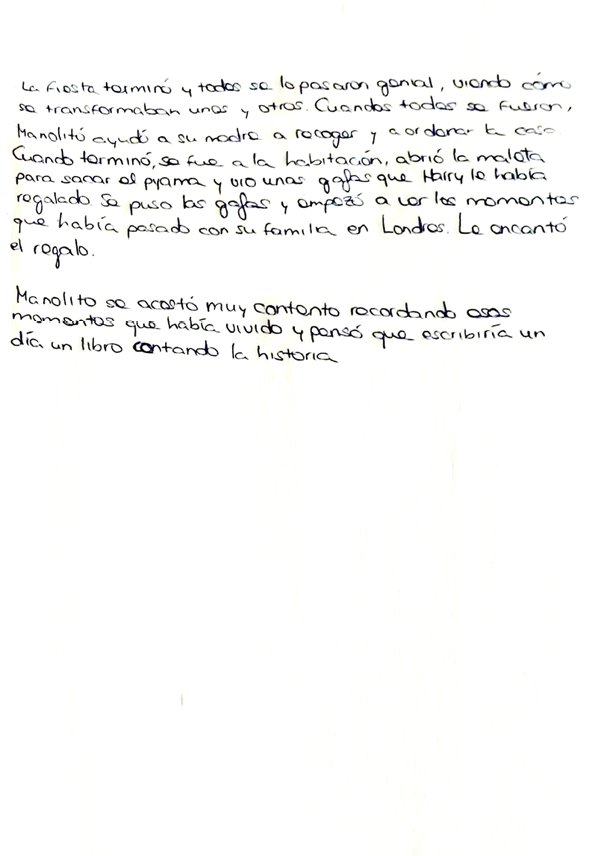 La fiesta terminó y todos se lo pasaron genial, viendo cómo
se transformaban unos y otros. Cuandos todos se fueron,
Manolitó ayudó a su madre a recoger y a ordenar la casa.
Cuando terminó, se fue a la habitación, abrió la maleta
para sacar el pyama y vio unas gafas que Harry le había
regalado Se puso las gafas y empezó a ver los momentos
que había pasado con su familia en Londres. Le encantó
el regalo.
Manolito se acostó muy contento recordando esos
momentos que había vivido y pensó que escribiría un
día un libro contando la historia